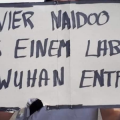 VIER NAIDOO
EINEM LAB
WUHAN ENTF